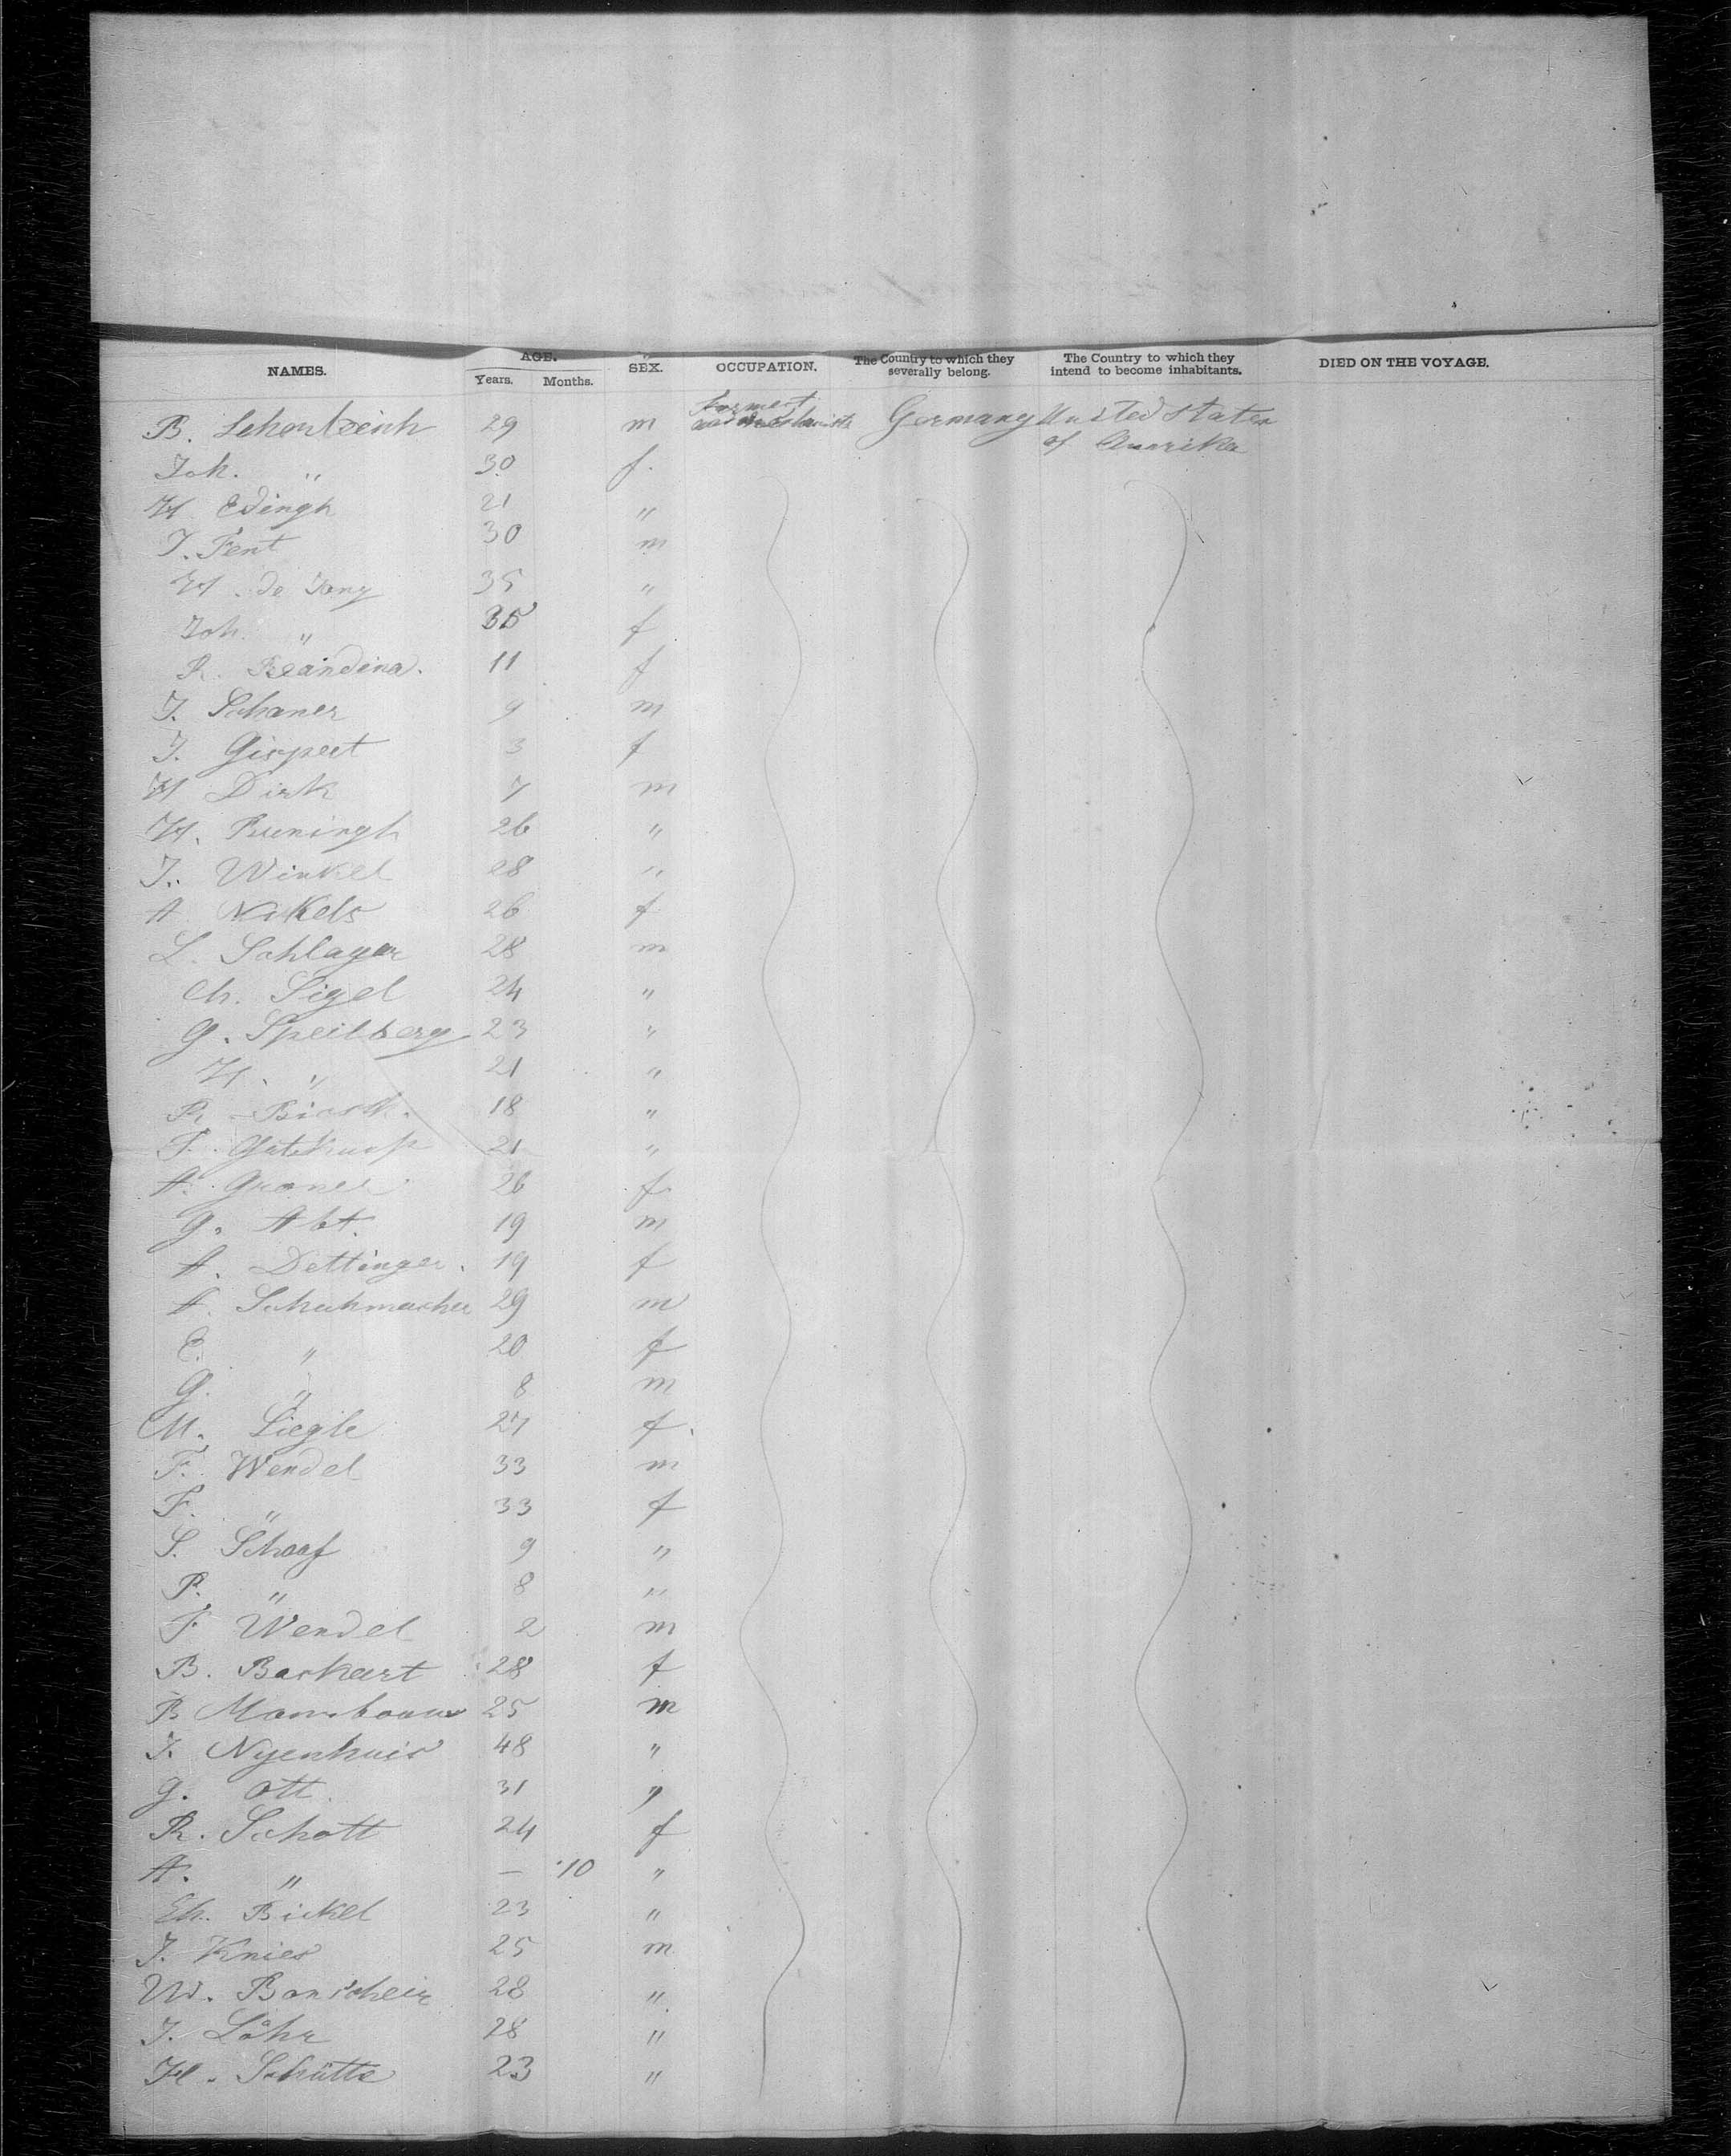 NAMES. AGE. Years. Months. SEX. OCCUPATION. The Country to which they severally belong. The Country to which they intend to become inhabitants. DIED ON THE VOYAGE.
B. 29 m Germany United States
of Amerika
Joh. " 30 f.
H Edingh 21 "
J. Fent 30 m
H. de Jong 35 "
Joh. " 35 f
R. 11 f
J. Schaner 9 m
J. 3 f
H Dirk 7 m
H. Runingh 26 "
J. Winkel 28 "
A. Nikels 26 f
L. Schlager 28 m
Ch. Sigel 24 "
G. Speilberg 23 "
H. " 21 "
R. 18 "
F. 21 "
A. 26 f
G. Abt. 19 m
A. Dettinger. 19 f
A. Schuhmacher 29 m
C. " 20 f
G. " 8 m
M. Siegle 27 f.
F. Wendel 33 m
F. " 33 f
S. Schaaf 9 "
P. " 8 "
F. Wendel 2 m
B. 28 f
B 25 m
J. Nyenhuis 48 "
G. Ott. 31 "
R. Schott 24 f
A. " — 10 "
Bickel 23 "
J. Knies 25 m
W. 28 "
J. Löhr 28 "
H. Schütte 23 "